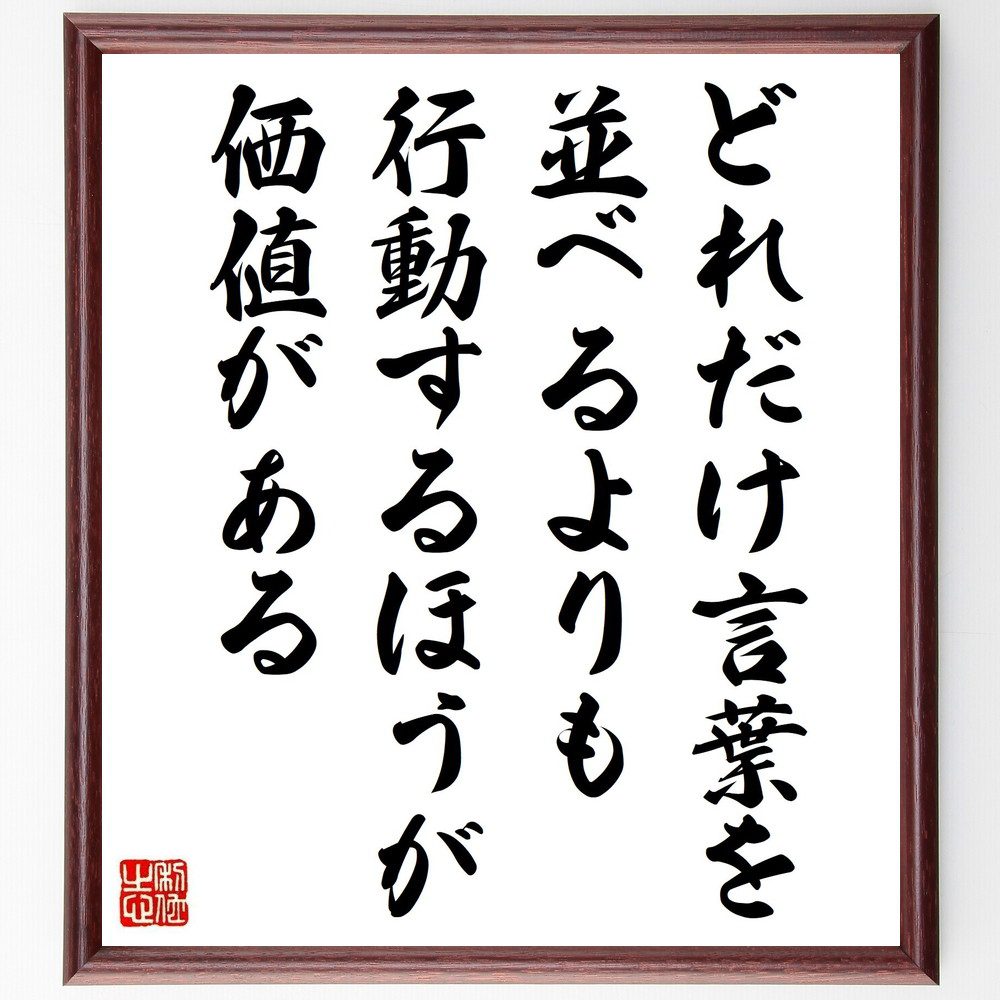 どれだけ言葉を
並べるよりも
行動するほうが
価値がある